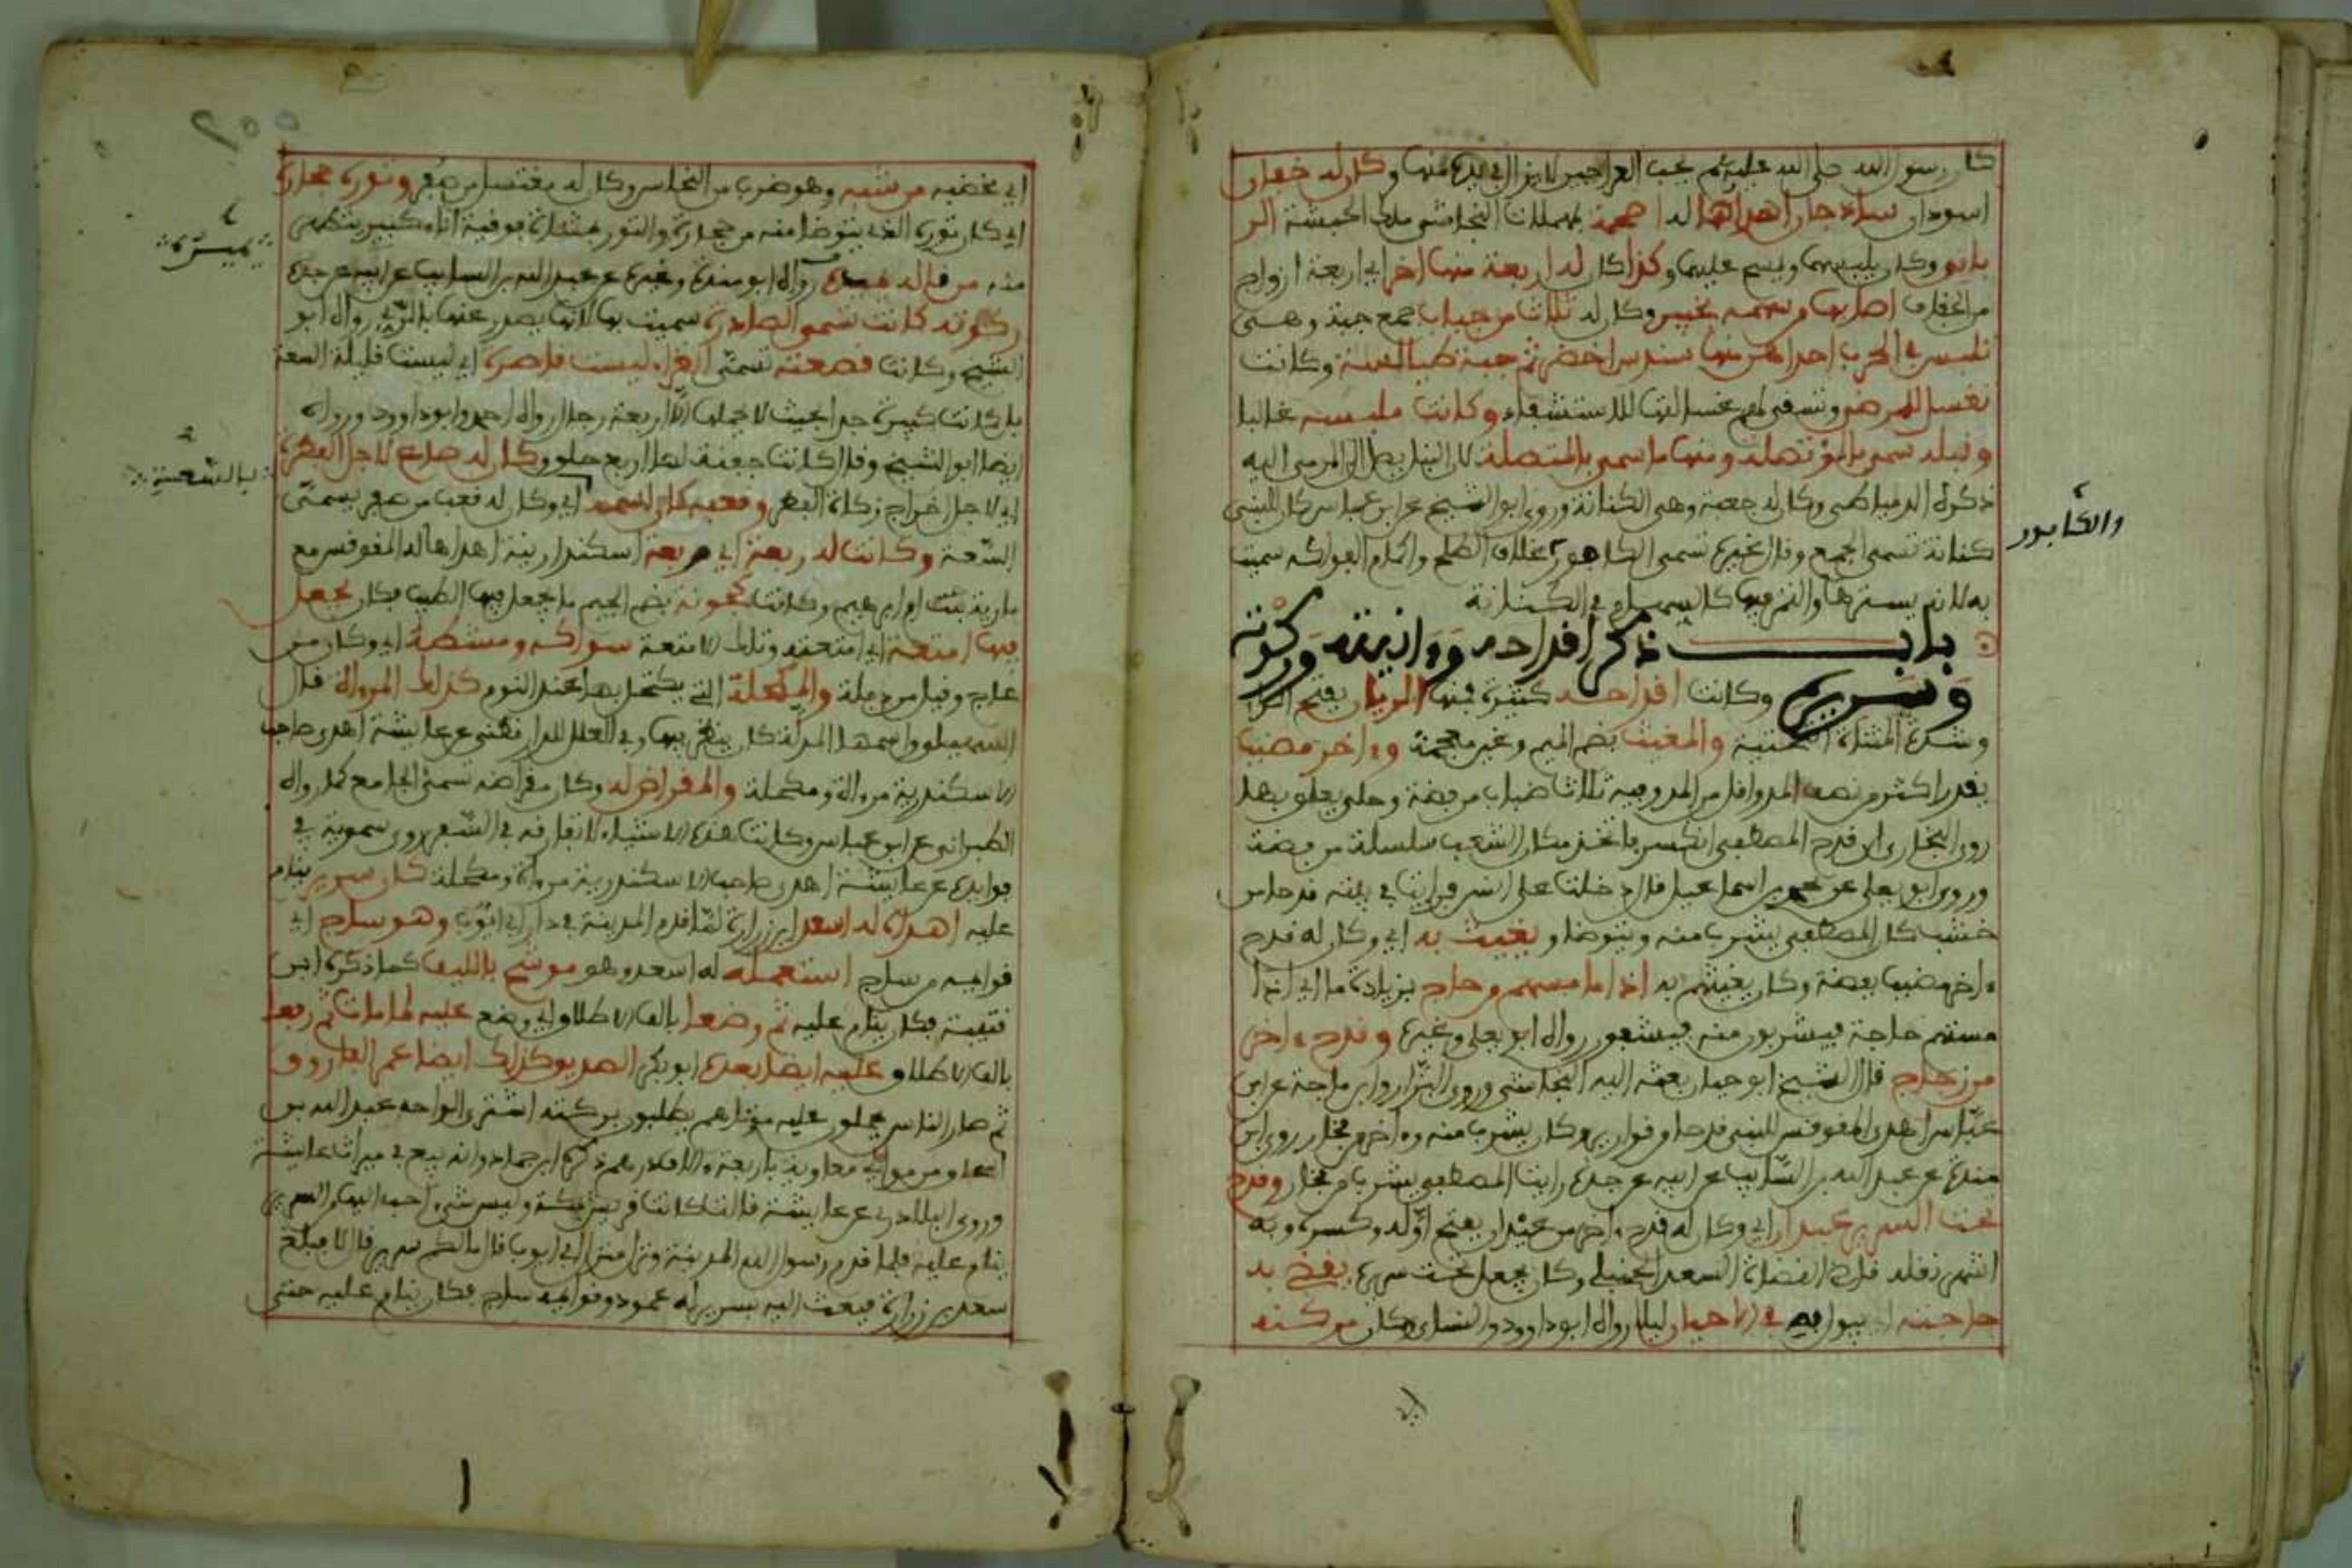 كان رسول الله صلى الله عليه وسلم يحب العراجين لا يزال في يده منها وكان له خفان
اسودان ساذجان اهداهما له اصحمة النجاشي ملك الحبشة الر
وكان يلبسهما ويمسح عليهما وكذا كان له اربعة منها اخر اي اربعة ازواج
من الخفاف اصابها من سهمه بخيبر وكان له ثلاث من جباب جمع جبة وهي
تلبس في الحرب احداهن منها سندس اخضر ثم جبة طيالسة وكانت
تغسل للمرضى وتسقى لهم غسالتها للاستشفاء وكانت ملبسه غالبا
ونبله سمي بالمؤتصلة ومنها ما سمي بالمتصلة لان النبل يصل الى المرمى اليه
ذكره الدمياطي وكان له جعبة وهي الكنانة وروى ابو الشيخ عن ابن عباس كان للنبي
كنانة تسمى الجمع وقال غيره تسمى الكافور غلاف الطلع واكمام الفواكه سميت
به لانه يسترها في الكنانة
والكافور
باب ذكر اقداحه وءانيته وركوته
وسريره وكانت اقداحه كثيرة فمنها الريان بفتح الرا
وشدة المثناة التحتية والمغيث بضم الميم وغين معجمة وءاخر مضبب
يقدر اكثر من نصف المد واقل من المد وفيه ثلاث ضباب من فضة وحلق يعلق بها
روى البخاري ان قدح المصطفى انكسر فاتخذ مكان الشعب سلسلة من فضة
وروى ابو يعلى عن محمد بن اسماعيل قال دخلت على انس فرايت في بيته قدحا من
خشب كان المصطفى يشرب منه ويتوضا ويغيث به اي وكان له قدح
ءاخر مضبب بفضة وكان يغيثهم به اذا ما مسهم من حاج بزيادة ما اي اذا
مستهم حاجة فيشربون منه فيشفون رواه ابو يعلى وغيره وقدح ءاخر
من زجاج قال الشيخ ابو حيان بعثه اليه النجاشي وروى البزار وابن ماجة عن ابن
عباس اهدى المقوقس للنبي قدحا من قوارير وكان يشرب منه وءاخر من فخار روى ابن
مندة عن عبد الله بن السايب عن ابيه عن جده رايت المصطفى يشرب من فخار وقدح
تحت السرير عيدان اي وكان له قدح ءاخر من عيدان بفتح اوله وكسره وبه
اشتهر نقله قاضي القضاة السعد الحنبلي وكان يجعل تحت سريره يقضي به
حاجته في الاحيان ليلا رواه ابو داوود والنساي وكان مركنه
اي
اي مخضبه من شبه وهو ضرب من النحاس وكان له مغتسل من صفر وتوره حجارة
اي كان توره الذي يتوضا منه من حجارة والتور بمثناة فوقية اناء كبير يتطهر
يسيرة
منه من قاله رواه ابو مندة وغيره عن عبد الله بن السايب عن ابيه عن جده
ركوته كانت تسمى الصادرة سميت بها لانها يصدر عنها بالري رواه ابو
الشيخ وكانت قصعته تسمى الغراء ليست قاصرة اي ليست قليلة السعة
بل كانت كبيرة جدا بحيث لا يحملها الا اربعة رجال رواه احمد وابو داوود ورواه
ايضا ابو الشيخ وقال كانت جفنة لها اربع حلق وكان له صاع لاجل الفطرة
بالسعة
اي لاجل اخراج زكاة الفطر وقعبه كان اسمه اي وكان له قعب من صفر يسمى
السعة وكانت له ربعة اي مربعة اسكندارنية اهداها له المقوقس مع
مارية بنت ام ابرهيم وكانت كجونة بضم الجيم ما يجعل فيها الطيب فكان يجعل
فيها امتعة اي امتعته وتلك الامتعة سواكه ومشطه اي وكان من
عاج وقيل من ذبلة والمكحلة التي يكتحل بها عند النوم كذلك المرءاة قال
واسمها المدلة كان ينظر فيها وفي العلل للدارقطني عن عايشة اهدى صاحب
الاسكندرية مرءاة ومكحلة والمقراض له وكان مقراضه تسمى الجامع كما رواه
الطبراني عن ابن عباس وكانت هذه الاشياء لا تفارقه في السفر وروى سموية في
فوايده عن عايشة اهدى صاحب الاسكندرية مرءاة ومكحلة كان سرير ينام
عليه اهداه له اسعد ابن زرارة لما قدم المدينة في دار ابي ايوب وهو ساج اي
قوايمه من ساج استعمله له اسعد وهو موشح بالليف كما ذكره ابن
قتيبة فكان ينام عليه ثم وضعا بالف الاطلاق اي وضع عليه لما مات ثم رفعا
بالف الاطلاق عليه ايضا بعده ابو بكر الصديق وكذلك ايضا عمر الفاروق
ثم صار الناس يحملون عليه موتاهم يطلبون بركته اشترى الواحه عبد الله بن
اسحاق من موالي معاوية باربعة ءالاف درهم ذكره ابن حماد وانه بيع في ميراث عايشة
وروى البلاذري عن عايشة قالت كانت قريش بمكة وليس شيء احب اليها من السرير
ينام عليه فلما قدم رسول الله المدينة ونزل منزل ابي ايوب قال ما لكم سرير قال لا فبلغ
سعد بن زرارة فبعث اليه بسرير له عمود وقوايمه ساج فكان ينام عليه حتى